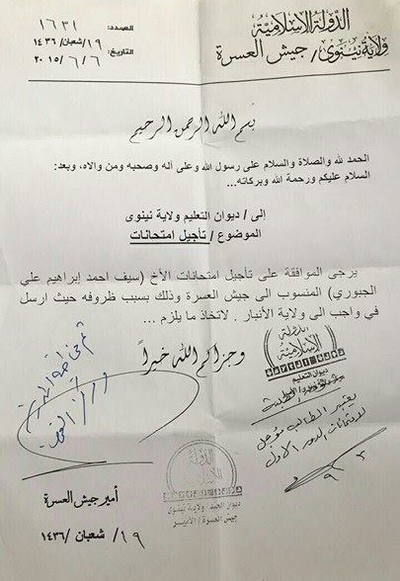 الدولة الإسلامية
ولاية نينوى / جيش العسرة
العدد: ١٦٣١
١٩/شعبان/١٤٣٦
التاريخ: ٦/٦/٢٠١٥
بسم الله الرحمن الرحيم
الحمد لله والصلاة والسلام على رسول الله وعلى آله وصحبه ومن والاه، وبعد:
السلام عليكم ورحمة الله وبركاته...
إلى / ديوان التعليم ولاية نينوى
الموضوع / تأجيل امتحانات
يرجى الموافقة على تأجيل امتحانات الأخ (سيف احمد إبراهيم علي
الجبوري) المنسوب الى جيش العسرة وذلك بسبب ظروفه حيث ارسل
في واجب الى ولاية الأنبار . لاتخاذ ما يلزم ...
وجزاكم الله خيراً
الدولة
الإسلامية
ديوان التعليم
يعتبر الطالب مؤجل
لامتحانات الدور الاول
٣/٩
الدولة
الإسلامية
ديوان الجند - ولاية نينوى
جيش العسرة / الأمير
أمير جيش العسرة
١٩/ شعبان /١٤٣٦